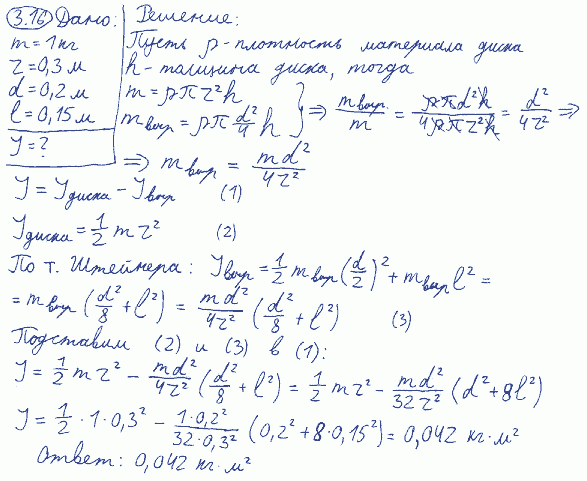 3.16 Дано: Решение:
m = 1 кг Пусть ρ - плотность материала диска
r = 0,3 м h - толщина диска, тогда
d = 0,2 м m = ρπr²h
l = 0,15 м m выр = ρπ d²/4 h } ⇒ m выр/m = ρπd²h/4ρπr²h = d²/4r² ⇒
J = ? ⇒ m выр = md²/4r²
J = J диска - J выр (1)
J диска = 1/2 m r² (2)
По т. Штейнера: J выр = 1/2 m выр (d/2)² + m выр l² =
= m выр (d²/8 + l²) = md²/4r² (d²/8 + l²) (3)
Подставим (2) и (3) в (1):
J = 1/2 m r² - md²/4r² (d²/8 + l²) = 1/2 m r² - md²/32r² (d² + 8l²)
J = 1/2 · 1 · 0,3² - 1·0,2²/32·0,3² (0,2² + 8·0,15²) = 0,042 кг·м²
Ответ: 0,042 кг·м²